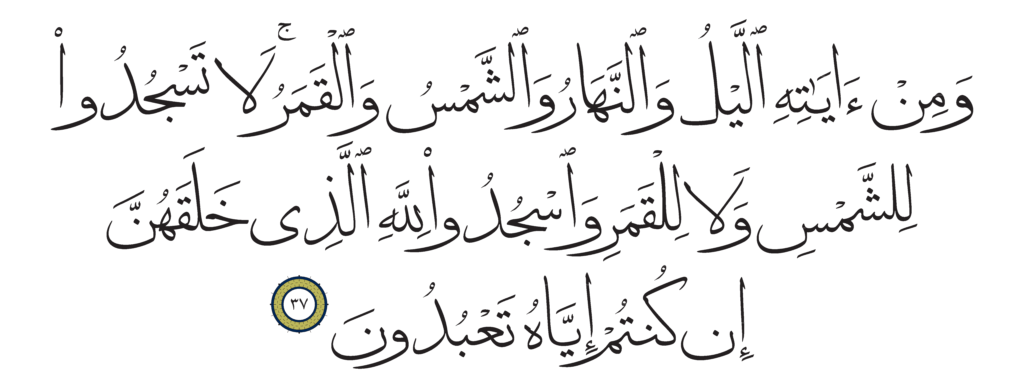 وَمِنْ ءَايَٰتِهِ ٱلَّيْلُ وَٱلنَّهَارُ وَٱلشَّمْسُ وَٱلْقَمَرُ ۚ لَا تَسْجُدُوا۟
لِلشَّمْسِ وَلَا لِلْقَمَرِ وَٱسْجُدُوا۟ لِلَّهِ ٱلَّذِى خَلَقَهُنَّ
إِن كُنتُمْ إِيَّاهُ تَعْبُدُونَ ٣٧